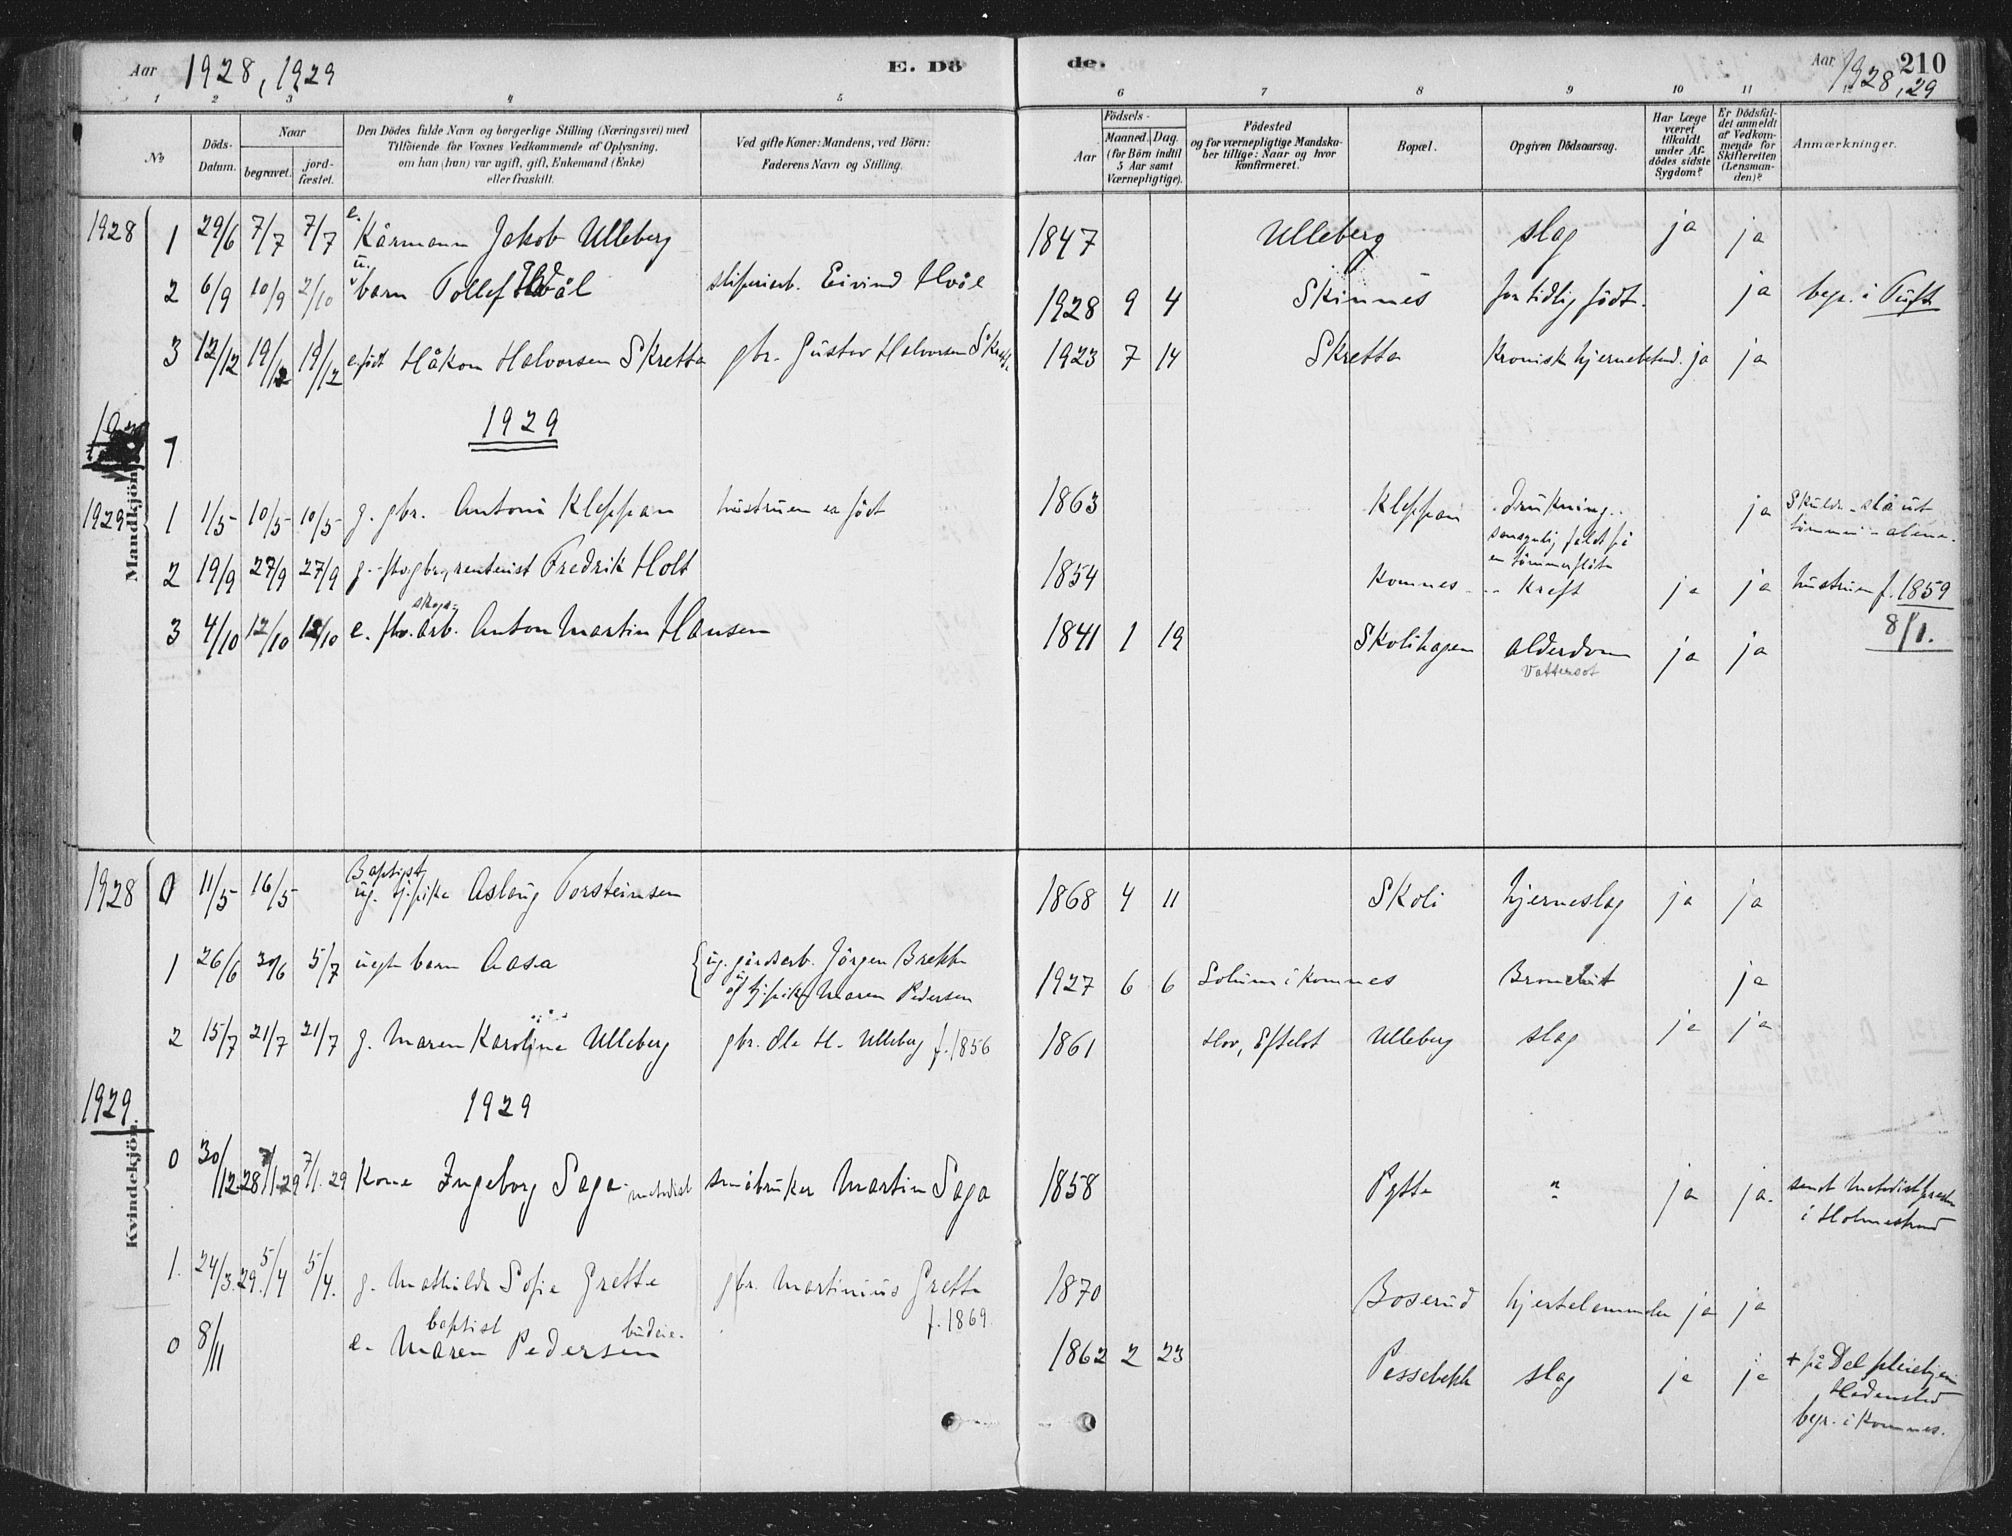 Aar 1928, 1929 E. Dö
de. Aar 1928, 29 210
1 2 3 4 5
6 7 8 9 10 11
No
Döds-Datum.
Naar
begravet.
jord-fæstet.
Den Dödes fulde Navn og borgerlige Stilling (Næringsvei) med
Tilföiende for Voxnes Vedkommende af Oplysning,
om han (hun) var ugift, gift, Enkemand (Enke)
eller fraskilt.
Ved gifte Koner: Mandens, ved Börn:
Faderens Navn og Stilling.
Födsels-
Aar
Maaned. Dag.
(for Börn indtil
5 Aar samt
Værnepligtige).
Födested
og for værnepligtige Mandska-
ber tillige: Naar og hvor
konfirmeret.
Bopæl.
Opgiven Dödsaarsag.
Har Læge
været
tilkaldt
under Af-
dödes sidste
Sygdom?
Er Dödsfal-
det anmeldt
af Vedkom-
mende for
Skifteretten
(Lensman-
den)?
Anmærkninger.
Mandkjön.
1928 1 29/6 7/7 7/7 e. Kårmann Jakob Ulleberg 1847 Ulleberg slag ja ja
2 6/9 10/9 2/10 u. barn Tollef Hvål sliperiarb. Eivind Hvål 1928 9 4 Skinnes for tidlig födt. ja begr. i Tuft
3 12/12 19/12 19/12 Håkon Halvorsen Skretta gbr. Gustav Halvorsen 1923 7 14 Skretta Kronisk ja ja
1929
1
1929 1 1/5 10/5 10/5 g. gbr. Anton Kleppan hustruen er födt 1863 Kleppan Drukning.
sansynlig faldt på
en tömmerflåte
ja Skulde slå ut
tömmer alene.
2 19/9 27/9 27/9 g. rentenist Fredrik Holt 1854 Komnes Kreft ja ja hustruen f. 1859
8/1.
skogs-
3 4/10 12/10 12/10 e. fhv. arb. Anton Martin Hansen 1841 1 19 Skolihagen alderdom ja ja
Vattersot
Kvindekjön.
Baptist
1928 0 11/5 16/5 ug. tj.pike Aslaug Torsteinsen 1868 4 11 Skoli hjerneslag ja ja
1 26/6 30/6 5/7 uegte barn Aasa { ug. gårdsarb. Jörgen Brekke
og tj.pike Maren Pedersen
1927 6 6 Solum i Komnes Bronchit ja
2 15/7 21/7 21/7 g. Maren Karoline Ulleberg gbr. Ole H. Ulleberg f. 1856 1861 Hov, Efteløt Ulleberg slag ja ja
1929 1929
0 30/12 28 7/1 29 7/1 29 Kone Ingeborg Saga metodist småbruker Martin Saga 1858 Pytte " ja ja. sendt Metodistpresten
i Holmestrand
1. 24/3 29. 5/4 5/4. g. Mathilde Sofie Grette gbr. Martinius Grette
f. 1869.
1870 Boserud hjertelammelse ja ja
baptist budeie.
0 8/11 e. Maren Pedersen 1862 2 23 Pessebekk slag ja ja + på Det pleiehjem
Hedensted
begr. i Komnes.